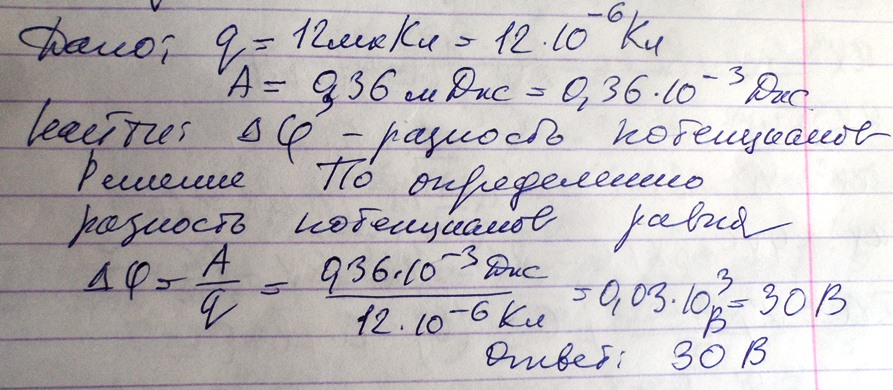 Дано: q = 12мкКл = 12·10⁻⁶ Кл
A = 0,36 мДж = 0,36·10⁻³ Дж
Найти: Δφ - разность потенциалов
Решение По определению
разность потенциалов равна
Δφ = A/q = 0,36·10⁻³ Дж / 12·10⁻⁶ Кл = 0,03·10³ В = 30 В
Ответ: 30 В